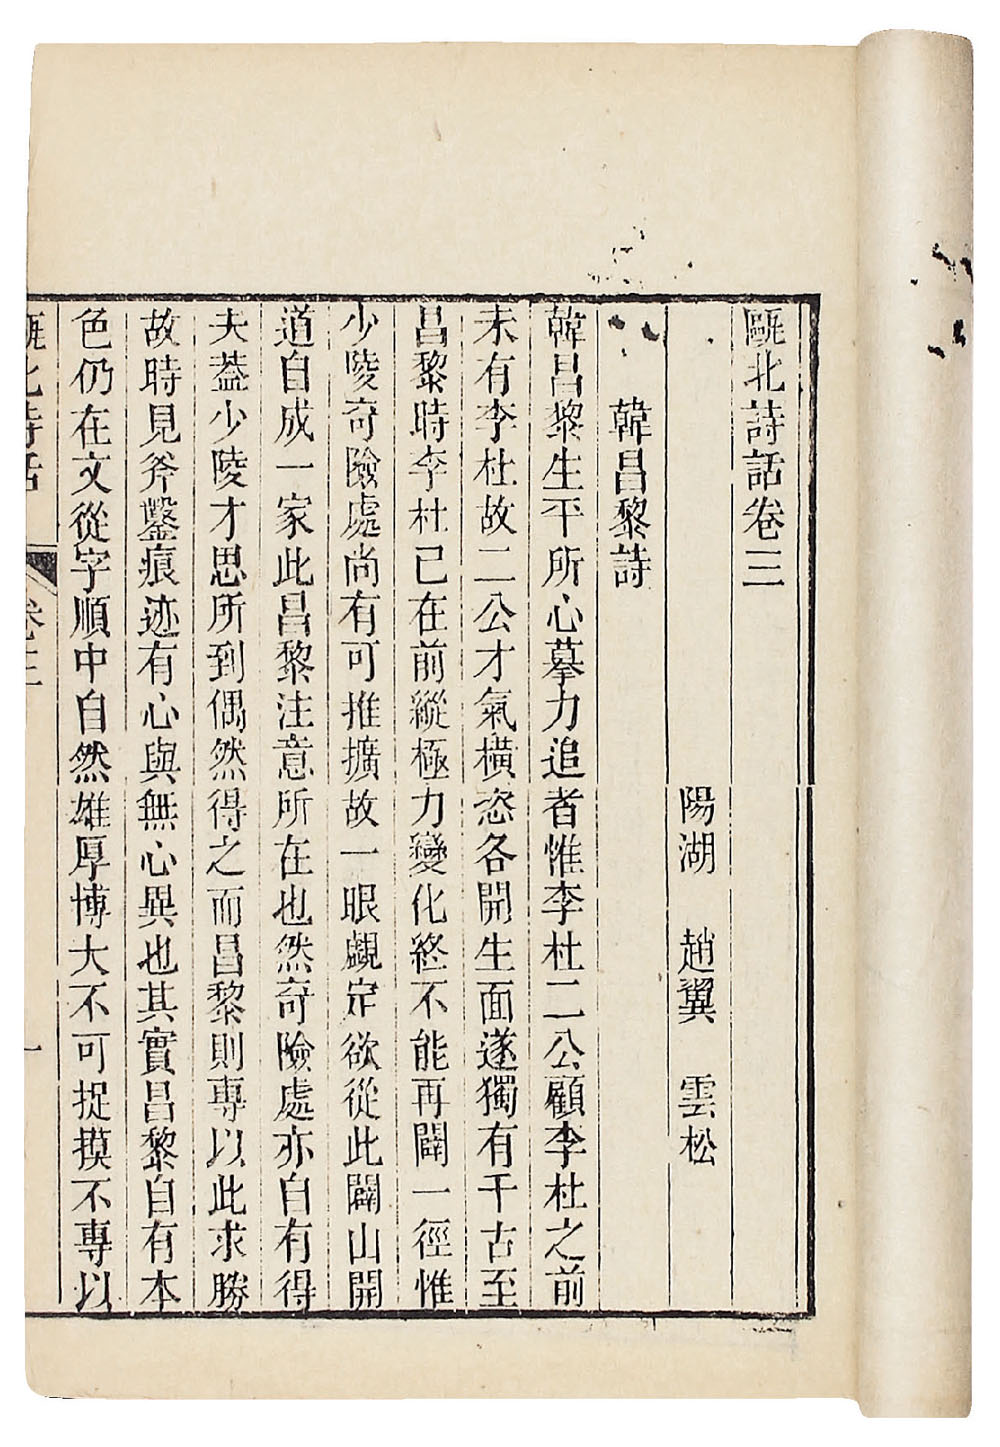 甌北詩話卷三
陽湖　趙翼　雲松
韓昌黎詩
韓昌黎生平所心摹力追者惟李杜二公顧李杜之前
未有李杜故二公才氣橫恣各開生面遂獨有千古至
昌黎時李杜已在前縱極力變化終不能再闢一徑惟
少陵奇險處尚有可推擴故一眼覷定欲從此闢山開
道自成一家此昌黎注意所在也然奇險處亦自有得
失葢少陵才思所到偶然得之而昌黎則專以此求勝
故時見斧鑿痕迹有心與無心異也其實昌黎自有本
色仍在文從字順中自然雄厚博大不可捉摸不專以
甌北詩話　卷三　一